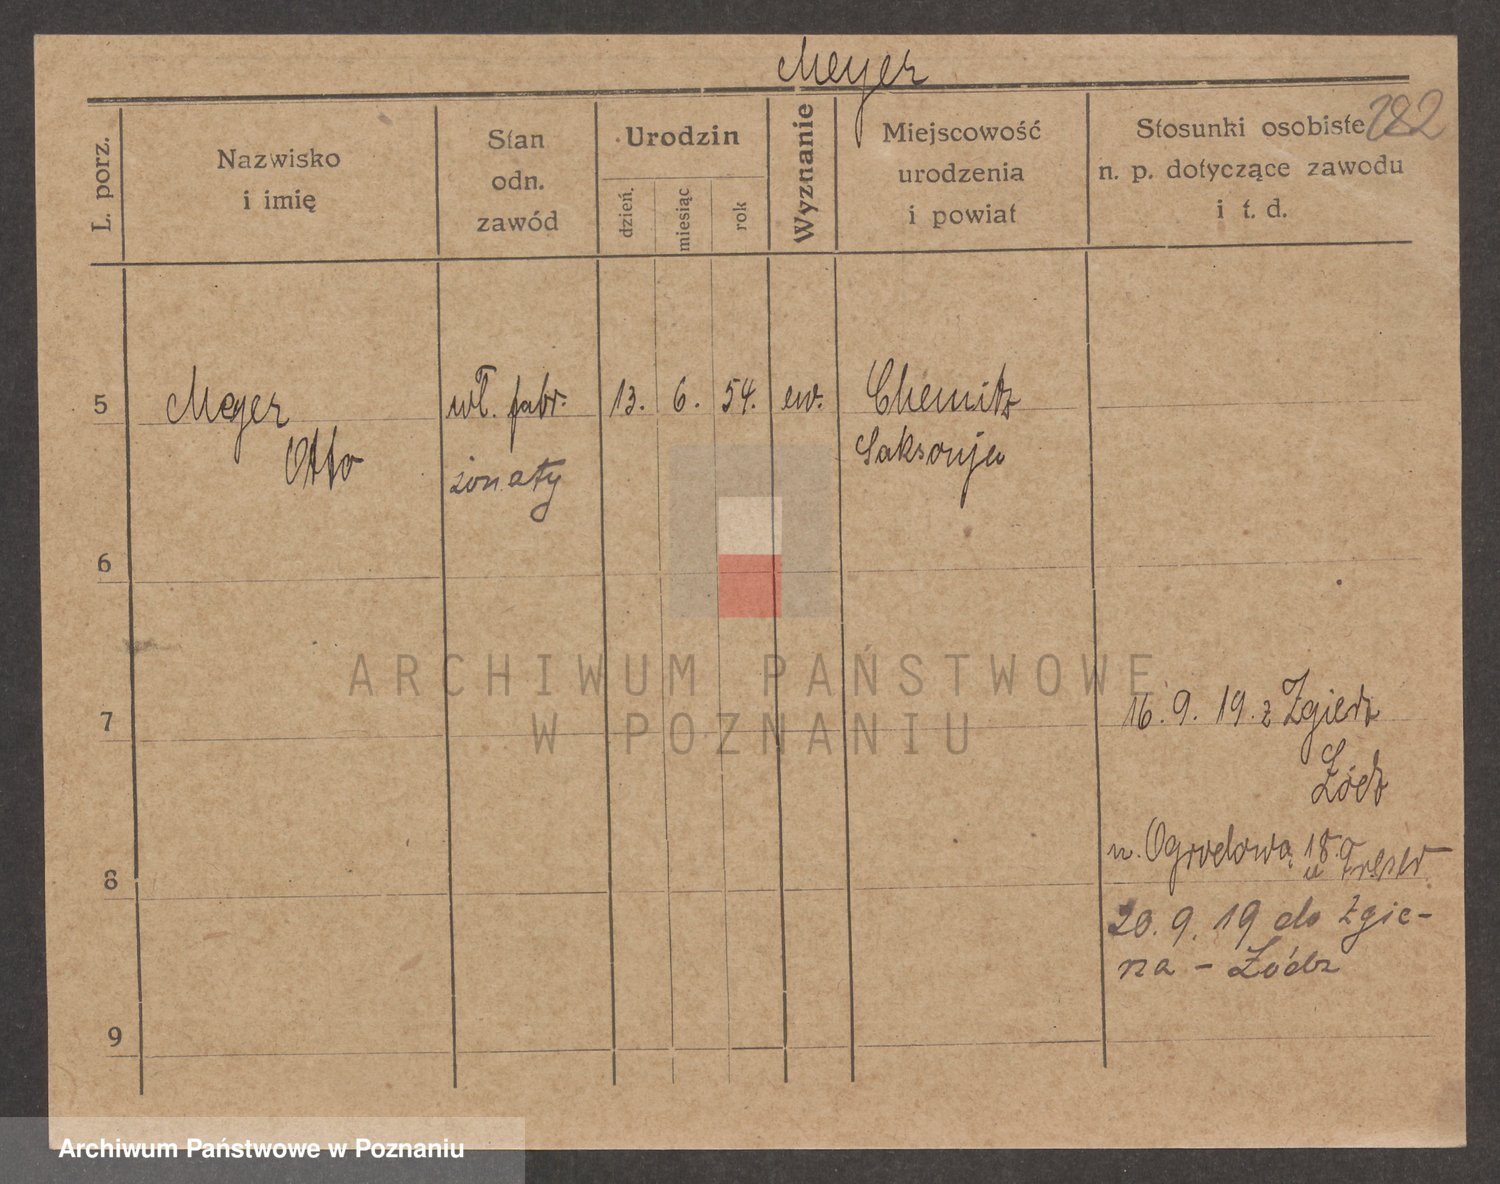 Meyer
282
L. porz.
Nazwisko
i imię
Stan
odn.
zawód
Urodzin
dzień.
miesiąc
rok
Wyznanie
Miejscowość
urodzenia
i powiat
Stosunki osobiste
n. p. dotyczące zawodu
i t. d.
5
Meyer
Otto
wł. fabr.
żonaty
13. 6. 54.
ew.
Chemitz
Saksonja
6
7
16. 9. 19. z Zgierz
Łódz
u. Ogrodowa 18.
8
20. 9. 19 do Zgie-
rza - Łódz
9
ARCHIWUM PAŃSTWOWE
W POZNANIU
Archiwum Państwowe w Poznaniu